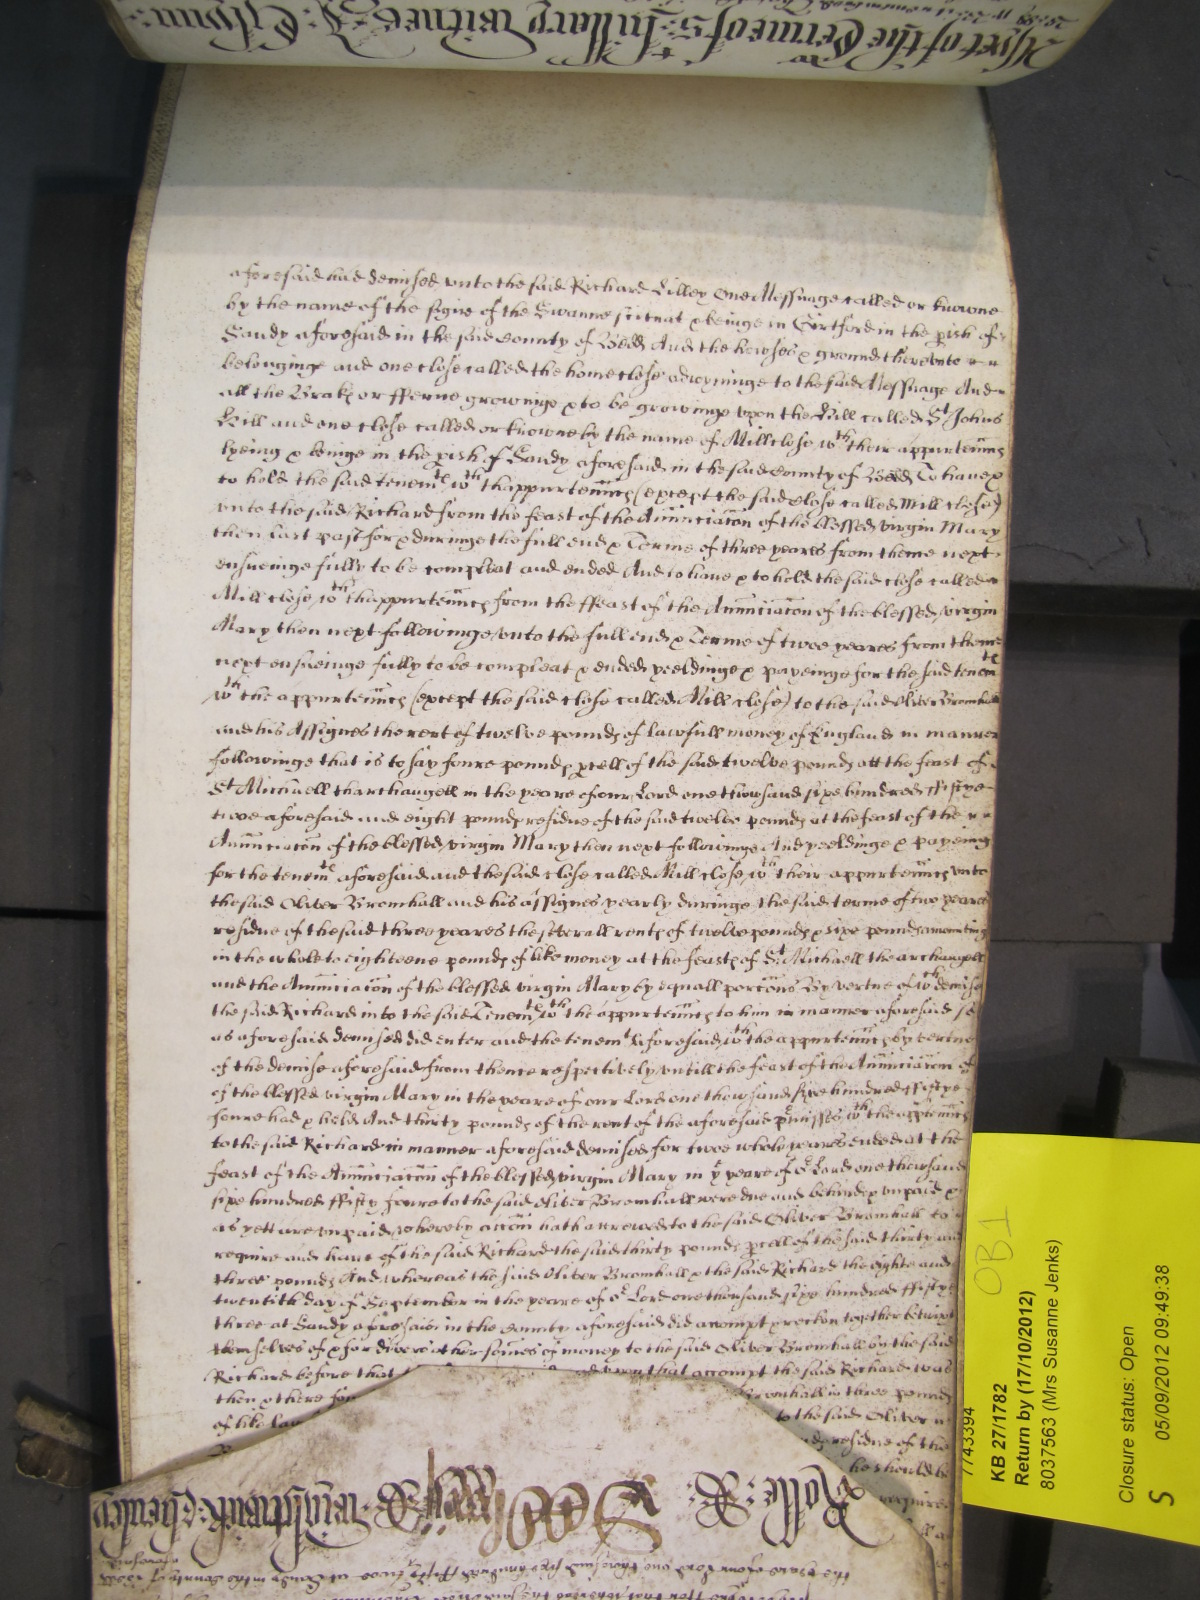 aforesaid had demised vnto the said Richard Lilley One Messuage called or knowne
by the name of the signe of the Swanne scituat & beinge in Girtford in the pish of
Sandy aforesaid in the said County of Bedd And the howses & ground therevnto
belonginge and one close called the home close adioyninge to the said Messuage And
all the Brakes or fferne growinge & to be growinge vpon the Hill called St Johns
Hill and one close called or knowne by the name of Mill close wth their appurtennces
lyeing & beinge in the pish of Sandy aforesaid in the said County of Bedd To have &
to hold the said tenemte wth thappurtennces (except the said Close called Mill close)
vnto the said Richard from the feast of the Annunciacon of the blessed virgin Mary
then last past for & duringe the full end & Terme of three yeares from thence next
ensueinge fully to be compleat and ended And to have & to hold the said close called
Mill close wth thappurtennces from the ffeast of the Annunciacon of the blessed virgin
Mary then next followinge vnto the full end & Terme of twoe yeares from thence
next ensueinge fully to be compleat & ended yeeldinge & payeinge for the said tenemte
wth the appurtennces (except the said close called Mill close) to the said Oliver Bromhall
and his Assignes the rent of twelve pounds of lawfull money of England in manner
followinge that is to say foure pounds pcell of the said twelve pounds att the feast of
St Michaell tharchangell in the yeare of our Lord one thowsand sixe hundred ffiftye
twoe aforesaid and eight pounds residue of the said twelve pounds at the feast of the
Annunciacon of the blessed virgin Mary then next followinge And yeeldinge & payeing
for the tenemte aforesaid and the said close called Mill close wth their appurtennces vnto
the said Oliver Bromhall and his assignes yearly duringe the said terme of two yeares
residue of the said three yeares the severall rents of twelve pounds & sixe pounds amounting
in the whole to eighteene pounds of like money at the feasts of St Michaell the archangell
and the Annunciacon of the blessed virgin Mary by equall porcons By vertue of wch demise
the said Richard into the said Tenemte wth the appurtennces to him in manner aforesaid
as aforesaid demised did enter and the tenemte aforesaid wth the appurtennces by vertue
of the demise aforesaid from thence respectively vntill the feast of the Annunciacon of
of the blessed virgin Mary in the yeare of our Lord one thowsand sixe hundred ffiftye
foure had & held And thirty pounds of the rent of the aforesaid pmisses wth the apptennces
to the said Richard in manner aforesaid demised for twoe whole yeares ended at the
feast of the Annunciacon of the blessed virgin Mary in ye yeare of or Lord one thowsand
sixe hundred ffifty foure to the said Oliver Bromhall were due and behind & vnpaid &
as yett are vnpaid whereby accon hath accrewed to the said Oliver Bromhall to
require and have of the said Richard the said thirty pounds pcell of the said thirty and
three pounds And whereas the said Oliver Bromhall & the said Richard the eighte and
twentith day of September in the yeare of or Lord one thousand sixe hundred ffiftye
three at Sandy aforesaid in the County aforesaid did accompt & reckon together betwixt
themselves of & for divers other somes of money to the said Oliver Bromhall by the said
Richard before that and vpon that accompt the said Richard was
then & there Bromhall in three pounds
of like to the said Oliver
residue of the
he should be
require
Rolle
the yeare of our Lord one thowsand sixe hundred ffifty
Terme of St Hillary witnes J
7743394
KB 27/1782
Return by (17/10/2012)
8037563 (Mrs Susanne Jenks)
OB1
Closure status: Open
05/09/2012 09:49:38
S